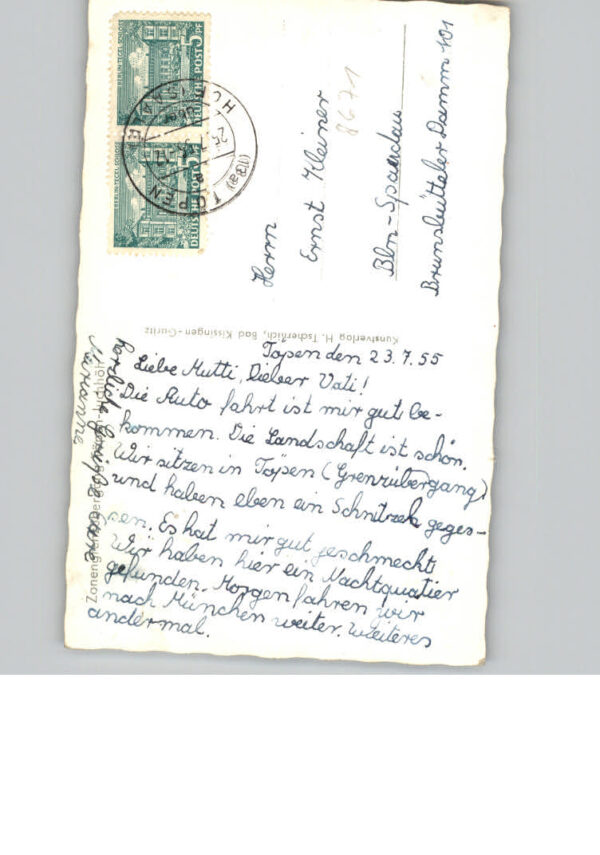 BERLIN-TEGEL·SCHLOSS
DEUTSCHE POST 5 PF
BERLIN-TEGEL·SCHLOSS
DEUTSCHE POST 5 PF
(13a) TÖPEN
Herrn
Ernst Kleiner
8671
Bln-Spandau
Brunsbütteler Damm 401
Kunstverlag H. Tschernich, Bad Kissingen-Garitz
Töpen den 23.7.55
Liebe Mutti, Lieber Vati!
Die Auto fahrt ist mir gut be-
kommen. Die Landschaft ist schön.
Wir sitzen in Töpen (Grenzübergang)
und haben eben ein Schnitzel geges-
sen. Es hat mir gut geschmeckt
Wir haben hier ein Nachtquatier
gefunden. Morgen fahren wir
nach München weiter. Weiteres
andermal.
herzliche Grüße eure
Marianne